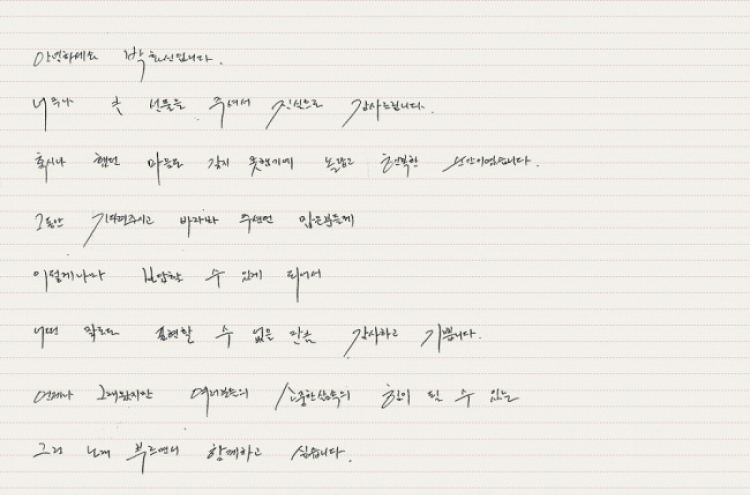 안녕하세요 박효신입니다.
너무나 큰 선물을 주셔서 진심으로 감사드립니다.
혹시나 했던 마음도 갖지 못했기에 놀랍고 행복한 순간이었습니다.
그동안 기다려주시고 바라봐 주셨던 많은분들께
이렇게나마 보답할 수 있게 되어서
어떤 말로도 표현할 수 없을 만큼 감사하고 기쁩니다.
언제나 그래왔지만 여러분들의 소중한 삶속의 힘이 될 수 있는
그런 노래 부르면서 함께하고 싶습니다.